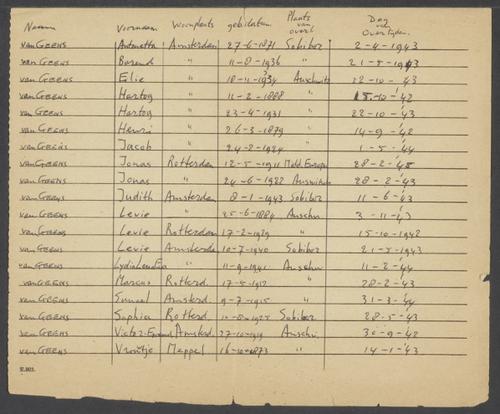 Naam Voornaam Woonplaats geb.datum Plaats van overl. Dag van Overlijden
van GEENS Antonetta Amsterdam 27-6-1871 Sobibor 2-4-1943
van GEENS Barend " 11-8-1936 " 21-5-1943
van GEENS Elie " Auschwitz 22-10-'43
van GEENS Hartog " 11-2-1888 " 15-10-'42
van GEENS Hartog " 23-4-1931 " 22-10-'43
van GEENS Henri " 26-3-1879 " 14-9-'42
van GEENS Jacob " 24-2-1924 " 1-5-'44
van GEENS Jonas Rotterdam 12-5-1911 Midd. Europa 28-2-'45
van GEENS Jonas " 24-6-1922 Auschwitz 28-2-'43
van GEENS Judith Amsterdam 8-1-1943 Sobibor 11-6-'43
van GEENS Levie " 25-6-1884 Auschw 3-11-'43
van GEENS Levie Rotterdam 17-2-1929 " 15-10-1942
van GEENS Levie Amsterda 10-7-1940 Sobibor 21-5-1943
van GEENS " 11-9-1941 Auschw 11-2-'44
van GEENS Marcus Rotterd. 17-5-1912 " 28-2-'43
van GEENS Samuel Amsterd. 9-7-1915 " 31-3-'44
van GEENS Sophia Rotterd. 10-8-1925 Sobibor 28-5-'43
van GEENS Amsterd. 27-10-1919 Auschw. 30-9-'42
van GEENS Vrontje Meppel 16-10-1873 " 14-1-'43